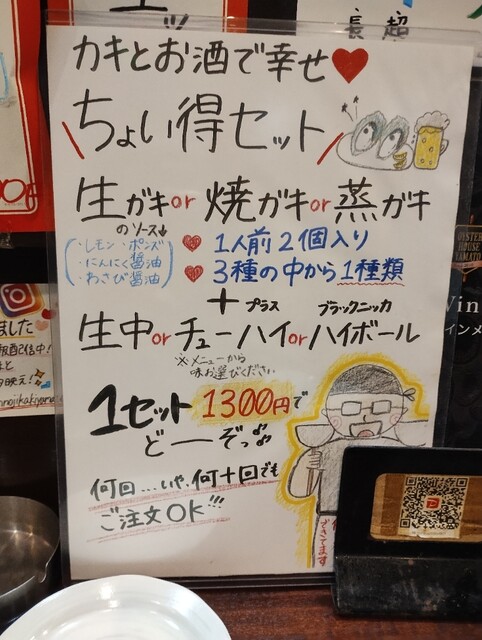 カキとお酒で幸せ♥
ちょい得セット
生ガキor焼ガキor蒸ガキ
のソース↓
・レモン・ポンズ
・にんにく醤油
・わさび醤油
♥1人前2個入り
♥3種の中から1種類
＋プラス
ブラックニッカ
生中orチューハイorハイボール
※メニューから
味お選びください
1セット1300円で
どーーぞっ♪
何回…いや、何十回でも
ご注文OK!!!
できてます
長
超
ました
配信中!
OYSTER
HOUSE